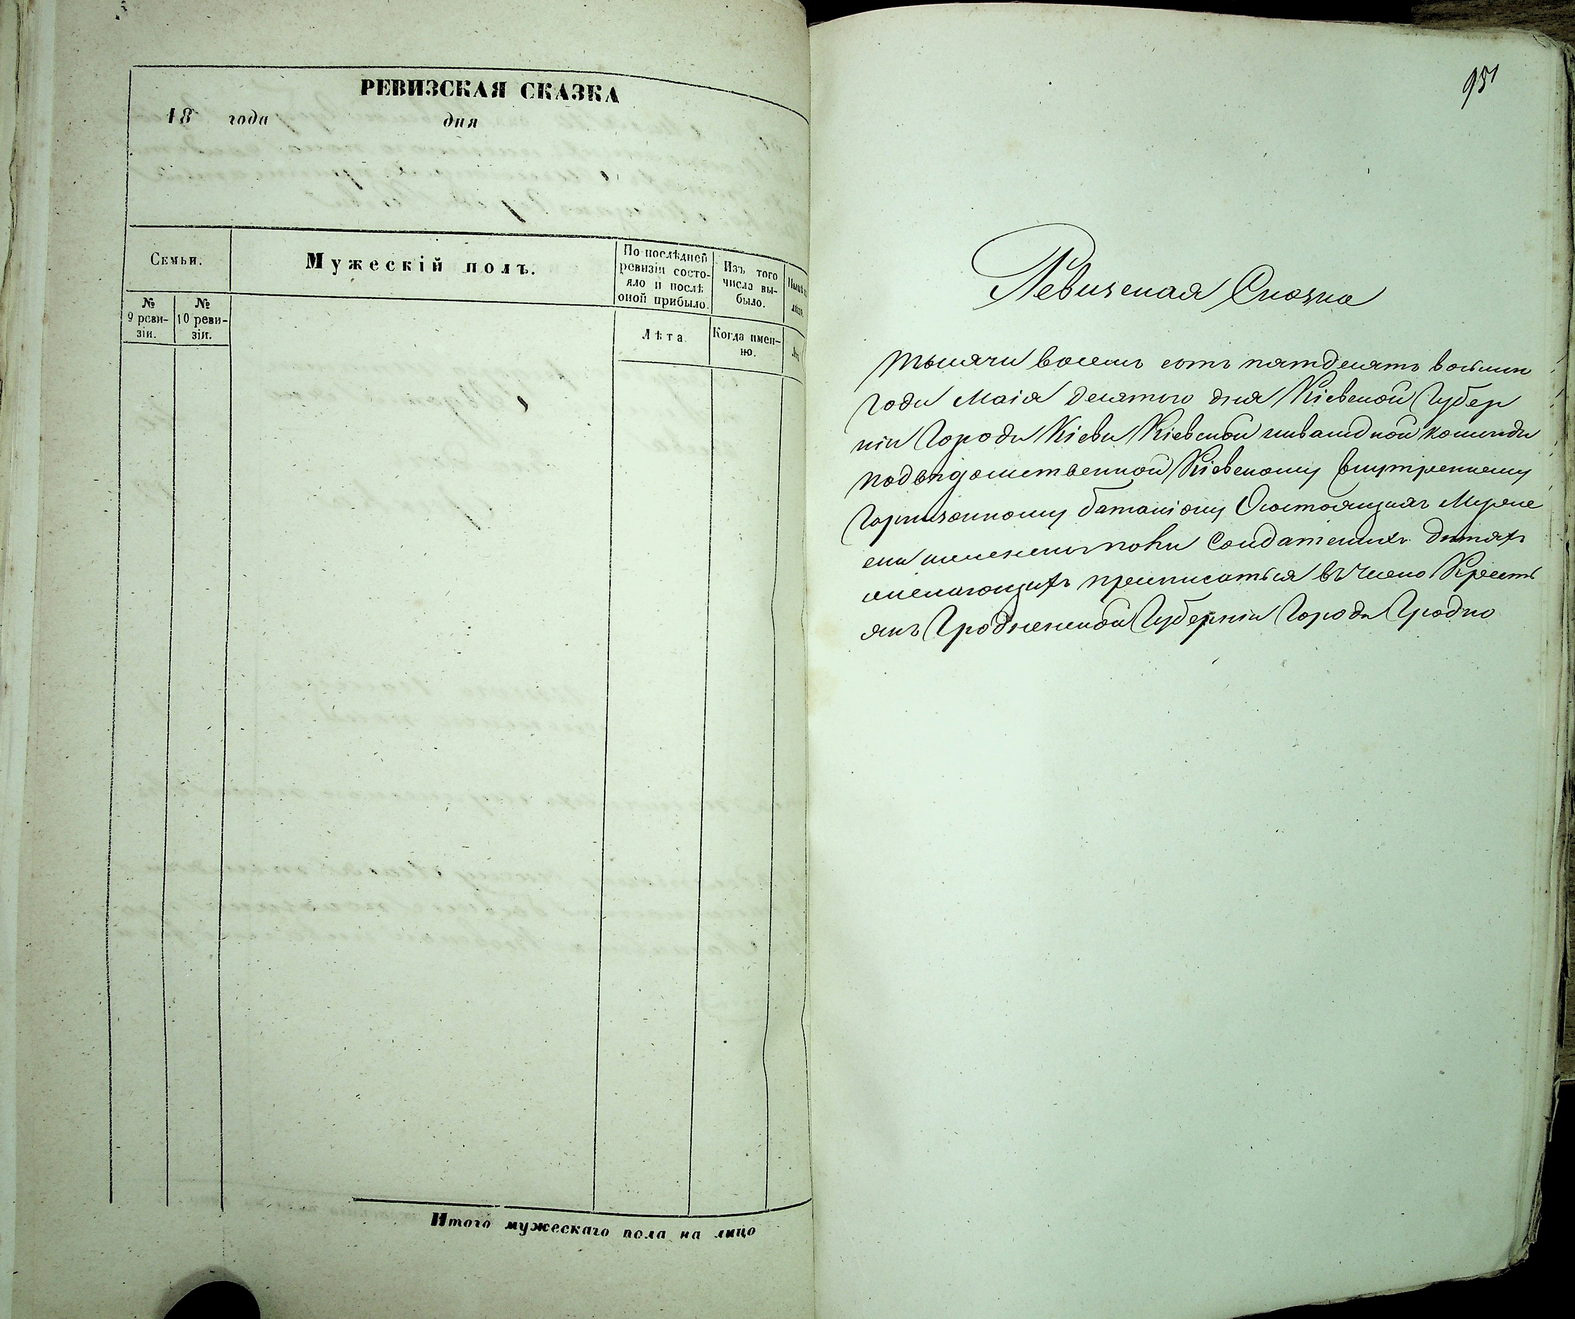 РЕВИЗСКАЯ СКАЗКА
18 года дня
Семьи.
Мужескій полъ.
По послѣдней ревизіи состо-
яло и послѣ
оной прибыло.
Изъ того
числа вы-
было.
№
9 реви-
зіи.
№
10 реви-
зіи.
Лѣта.
Когда имен-
но.
Итого мужескаго пола на лицо
95
Ревизская Сказка
тысячи восемь сотъ пятдесятъ восьми
года Маія десятого дня Кіевской Губер
ніи Города Кіева Кіевской инвалидной команды
подвѣдомственной Кіевскому внутреннему
Гарнизонному баталіону О состоящихъ Мужес
ка женска пола Солдатскихъ дѣтяхъ
желающихъ приписаться въ число Кресть
янъ Гродненской Губерніи Города Гродно